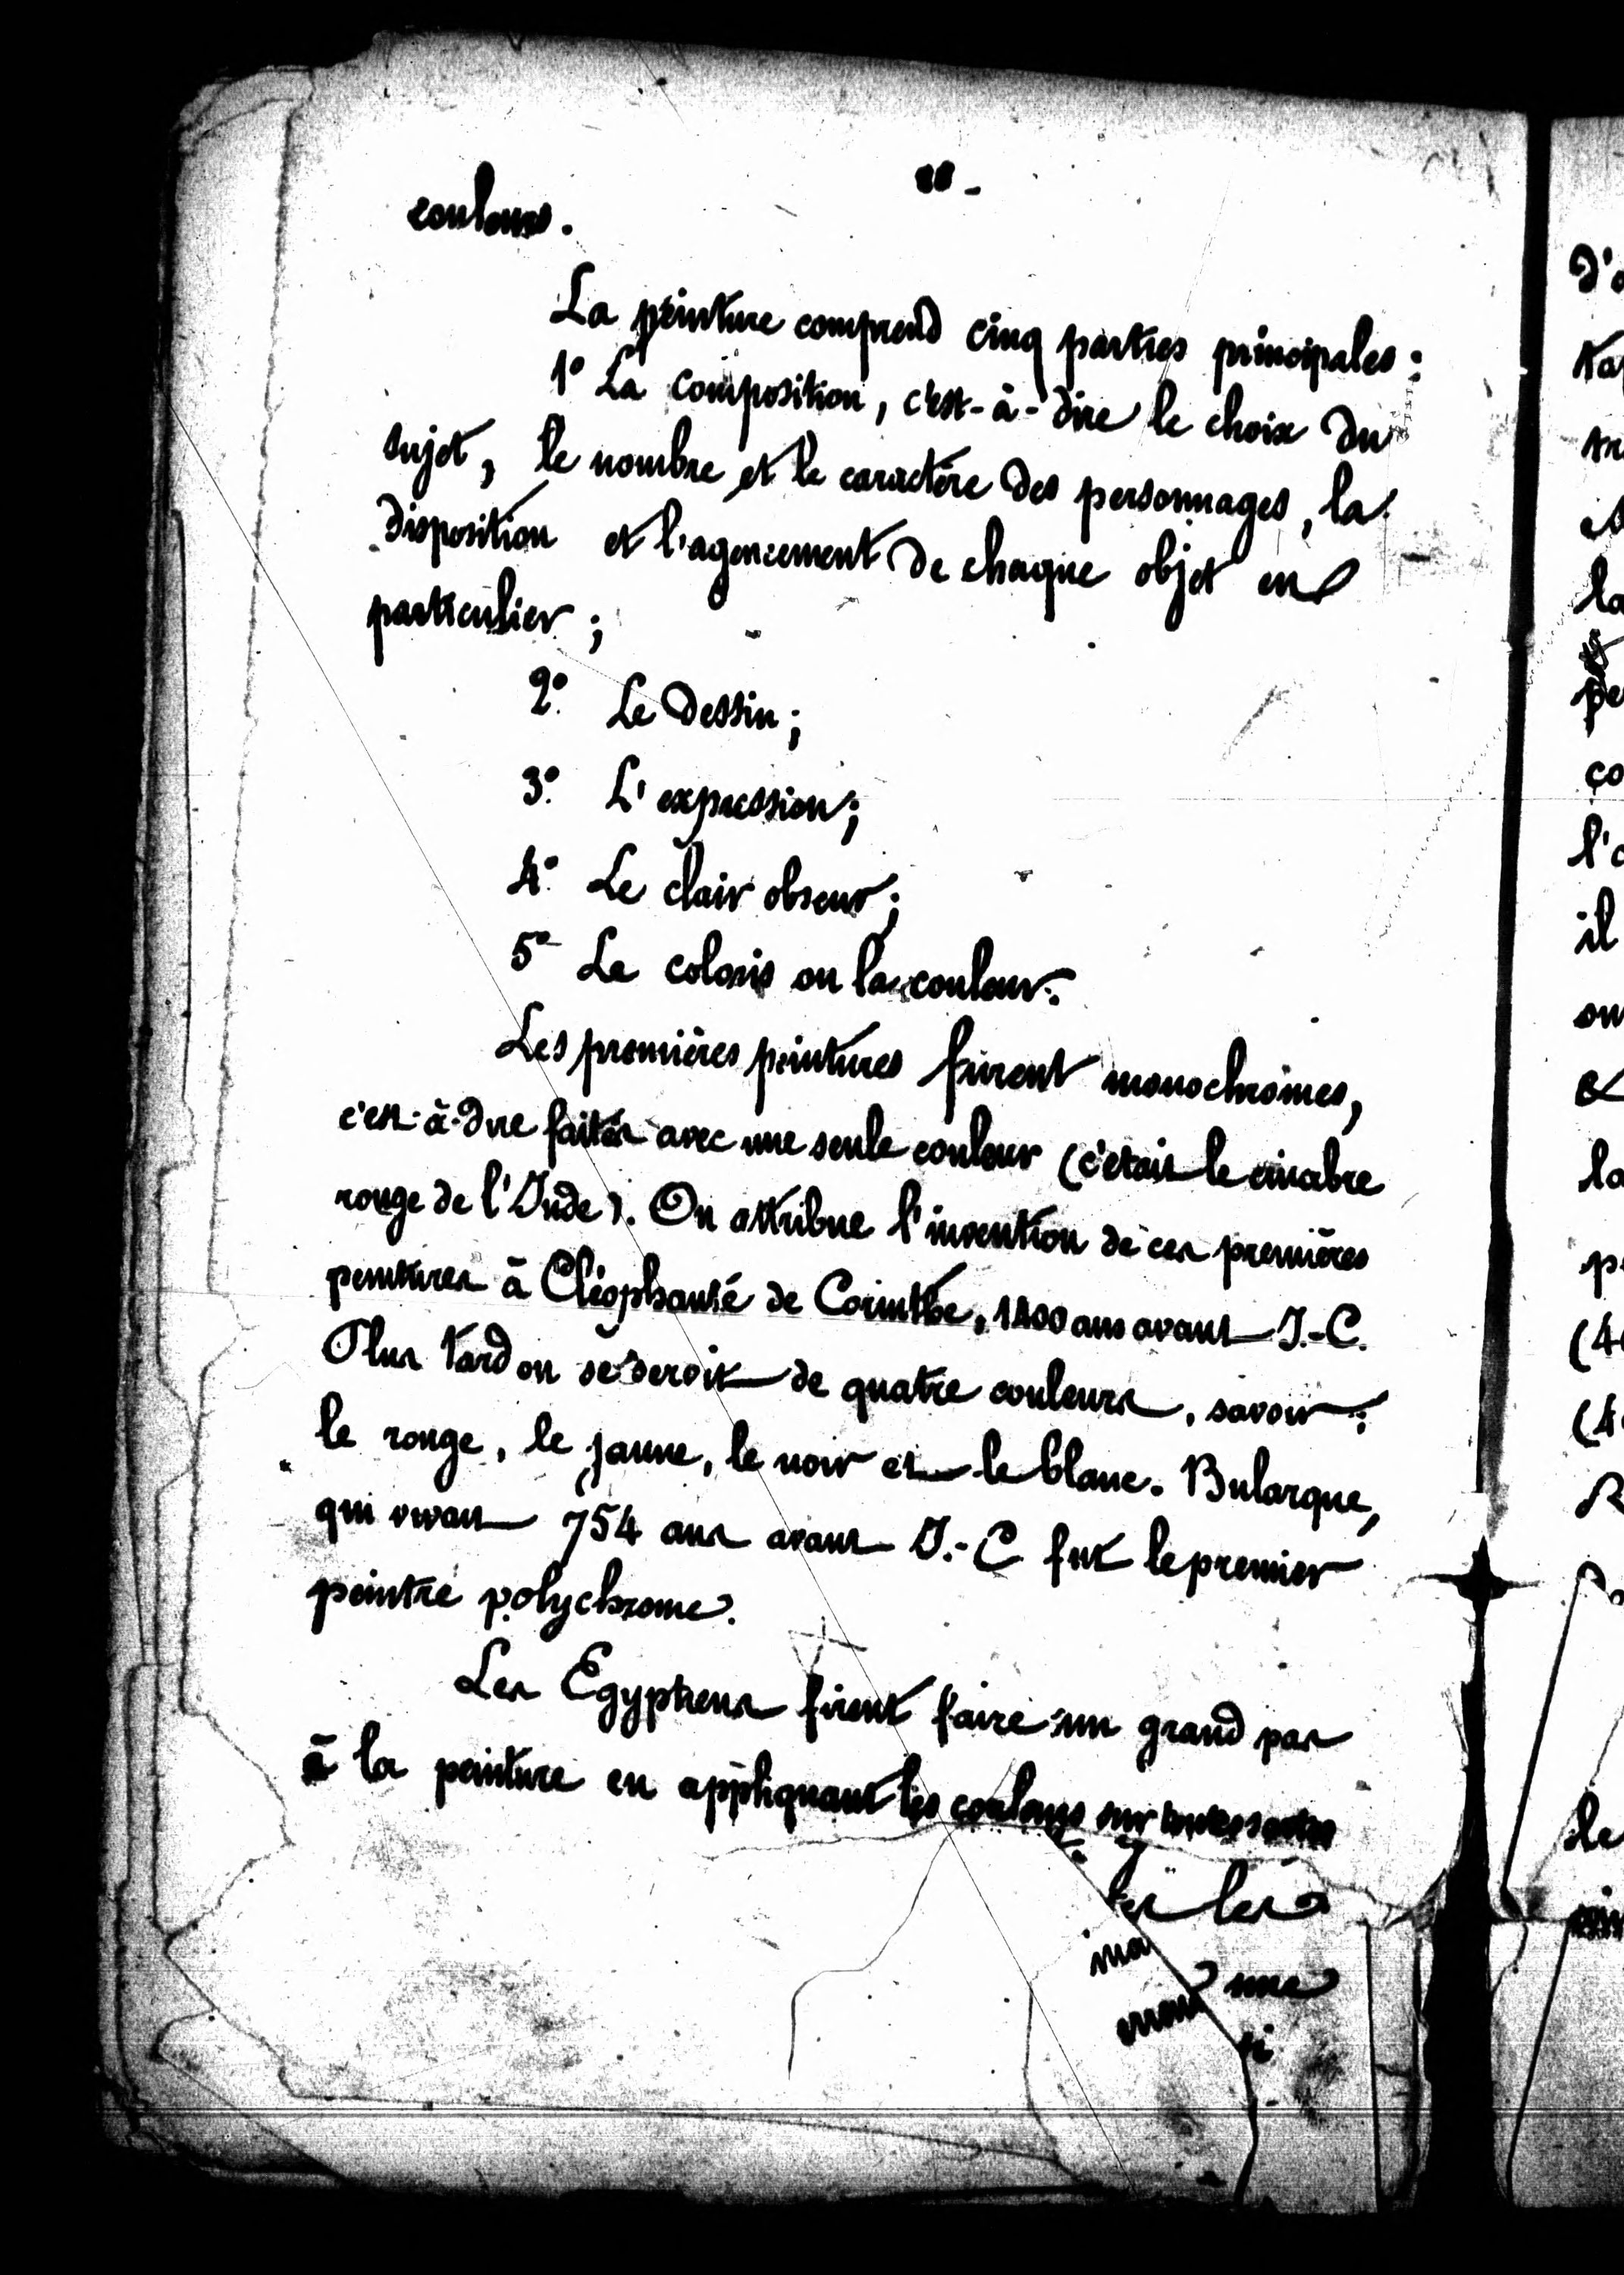 couleurs.
La peinture comprend cinq parties principales :
1° La composition, c'est-à-dire le choix du
sujet, le nombre et le caractère des personnages, la
disposition et l'agencement de chaque objet en
particulier ;
2° Le dessin ;
3° L'expression ;
4° Le clair obscur ;
5° Le coloris ou la couleur.
Les premières peintures furent monochromes,
c'est-à-dire faites avec une seule couleur (c'était le cinabre
rouge de l'Inde). On attribue l'invention de ces premières
peintures à Cléophante de Corinthe, 1400 ans avant J.-C.
Plus tard on se servit de quatre couleurs, savoir :
le rouge, le jaune, le noir et le blanc. Bularque,
qui vivait 754 ans avant J.-C fut le premier
peintre polychrome.
Les Egyptiens firent faire un grand pas
à la peinture en appliquant les couleurs sur toutes sortes
les
une
d'
il
la